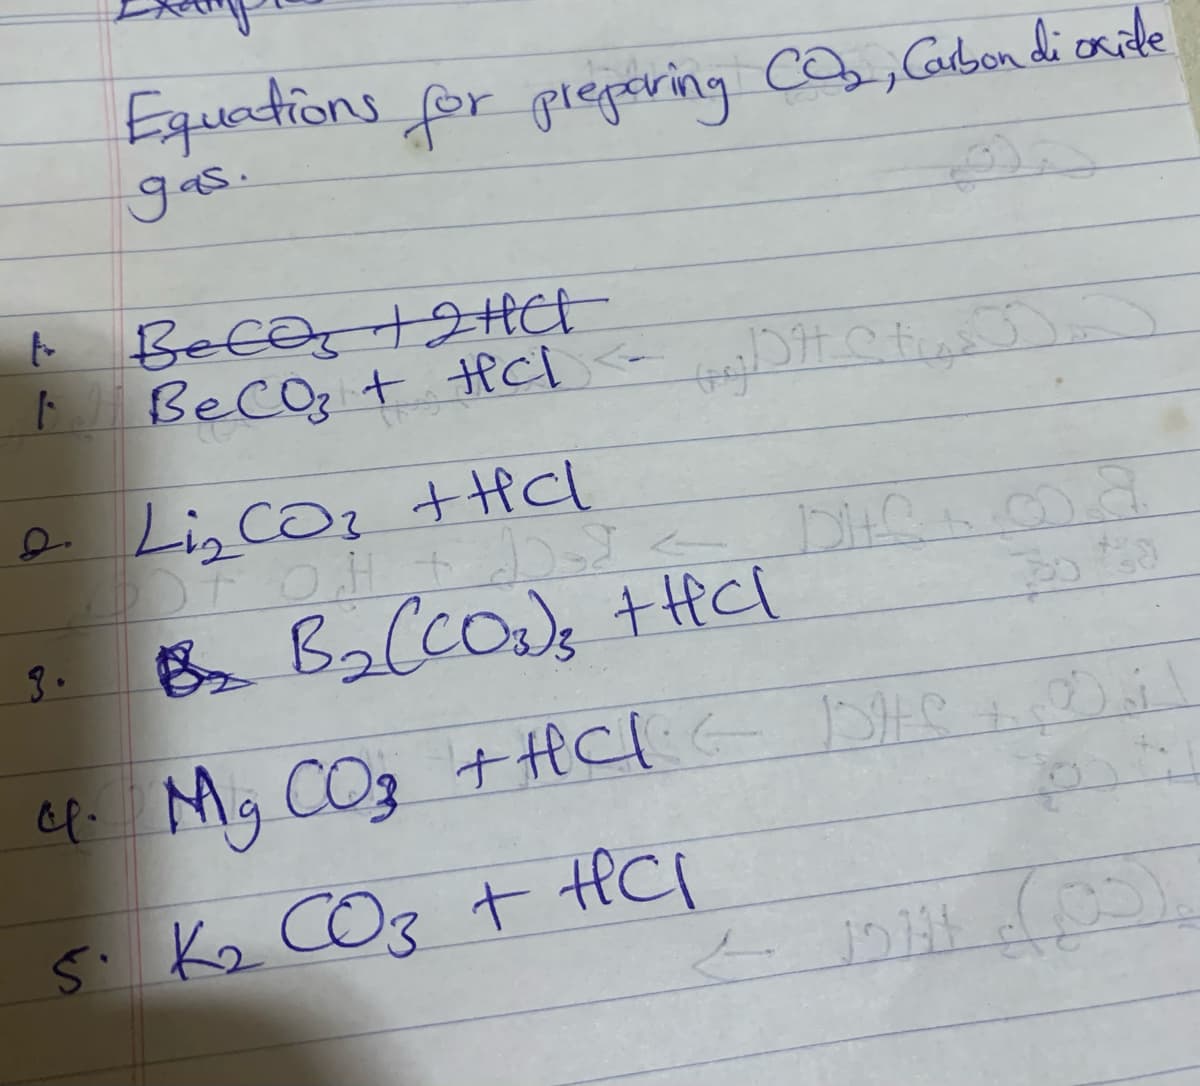 Equations for preparing CO₂, Carbon di oxide
gas.
1. BeCO₃ + 2HCl
1. BeCO₃ + HCl
2. Li₂CO₃ + HCl
3. B₂ B₂(CO₃)₃ + HCl
4. Mg CO₃ + HCl
5. K₂ CO₃ + HCl